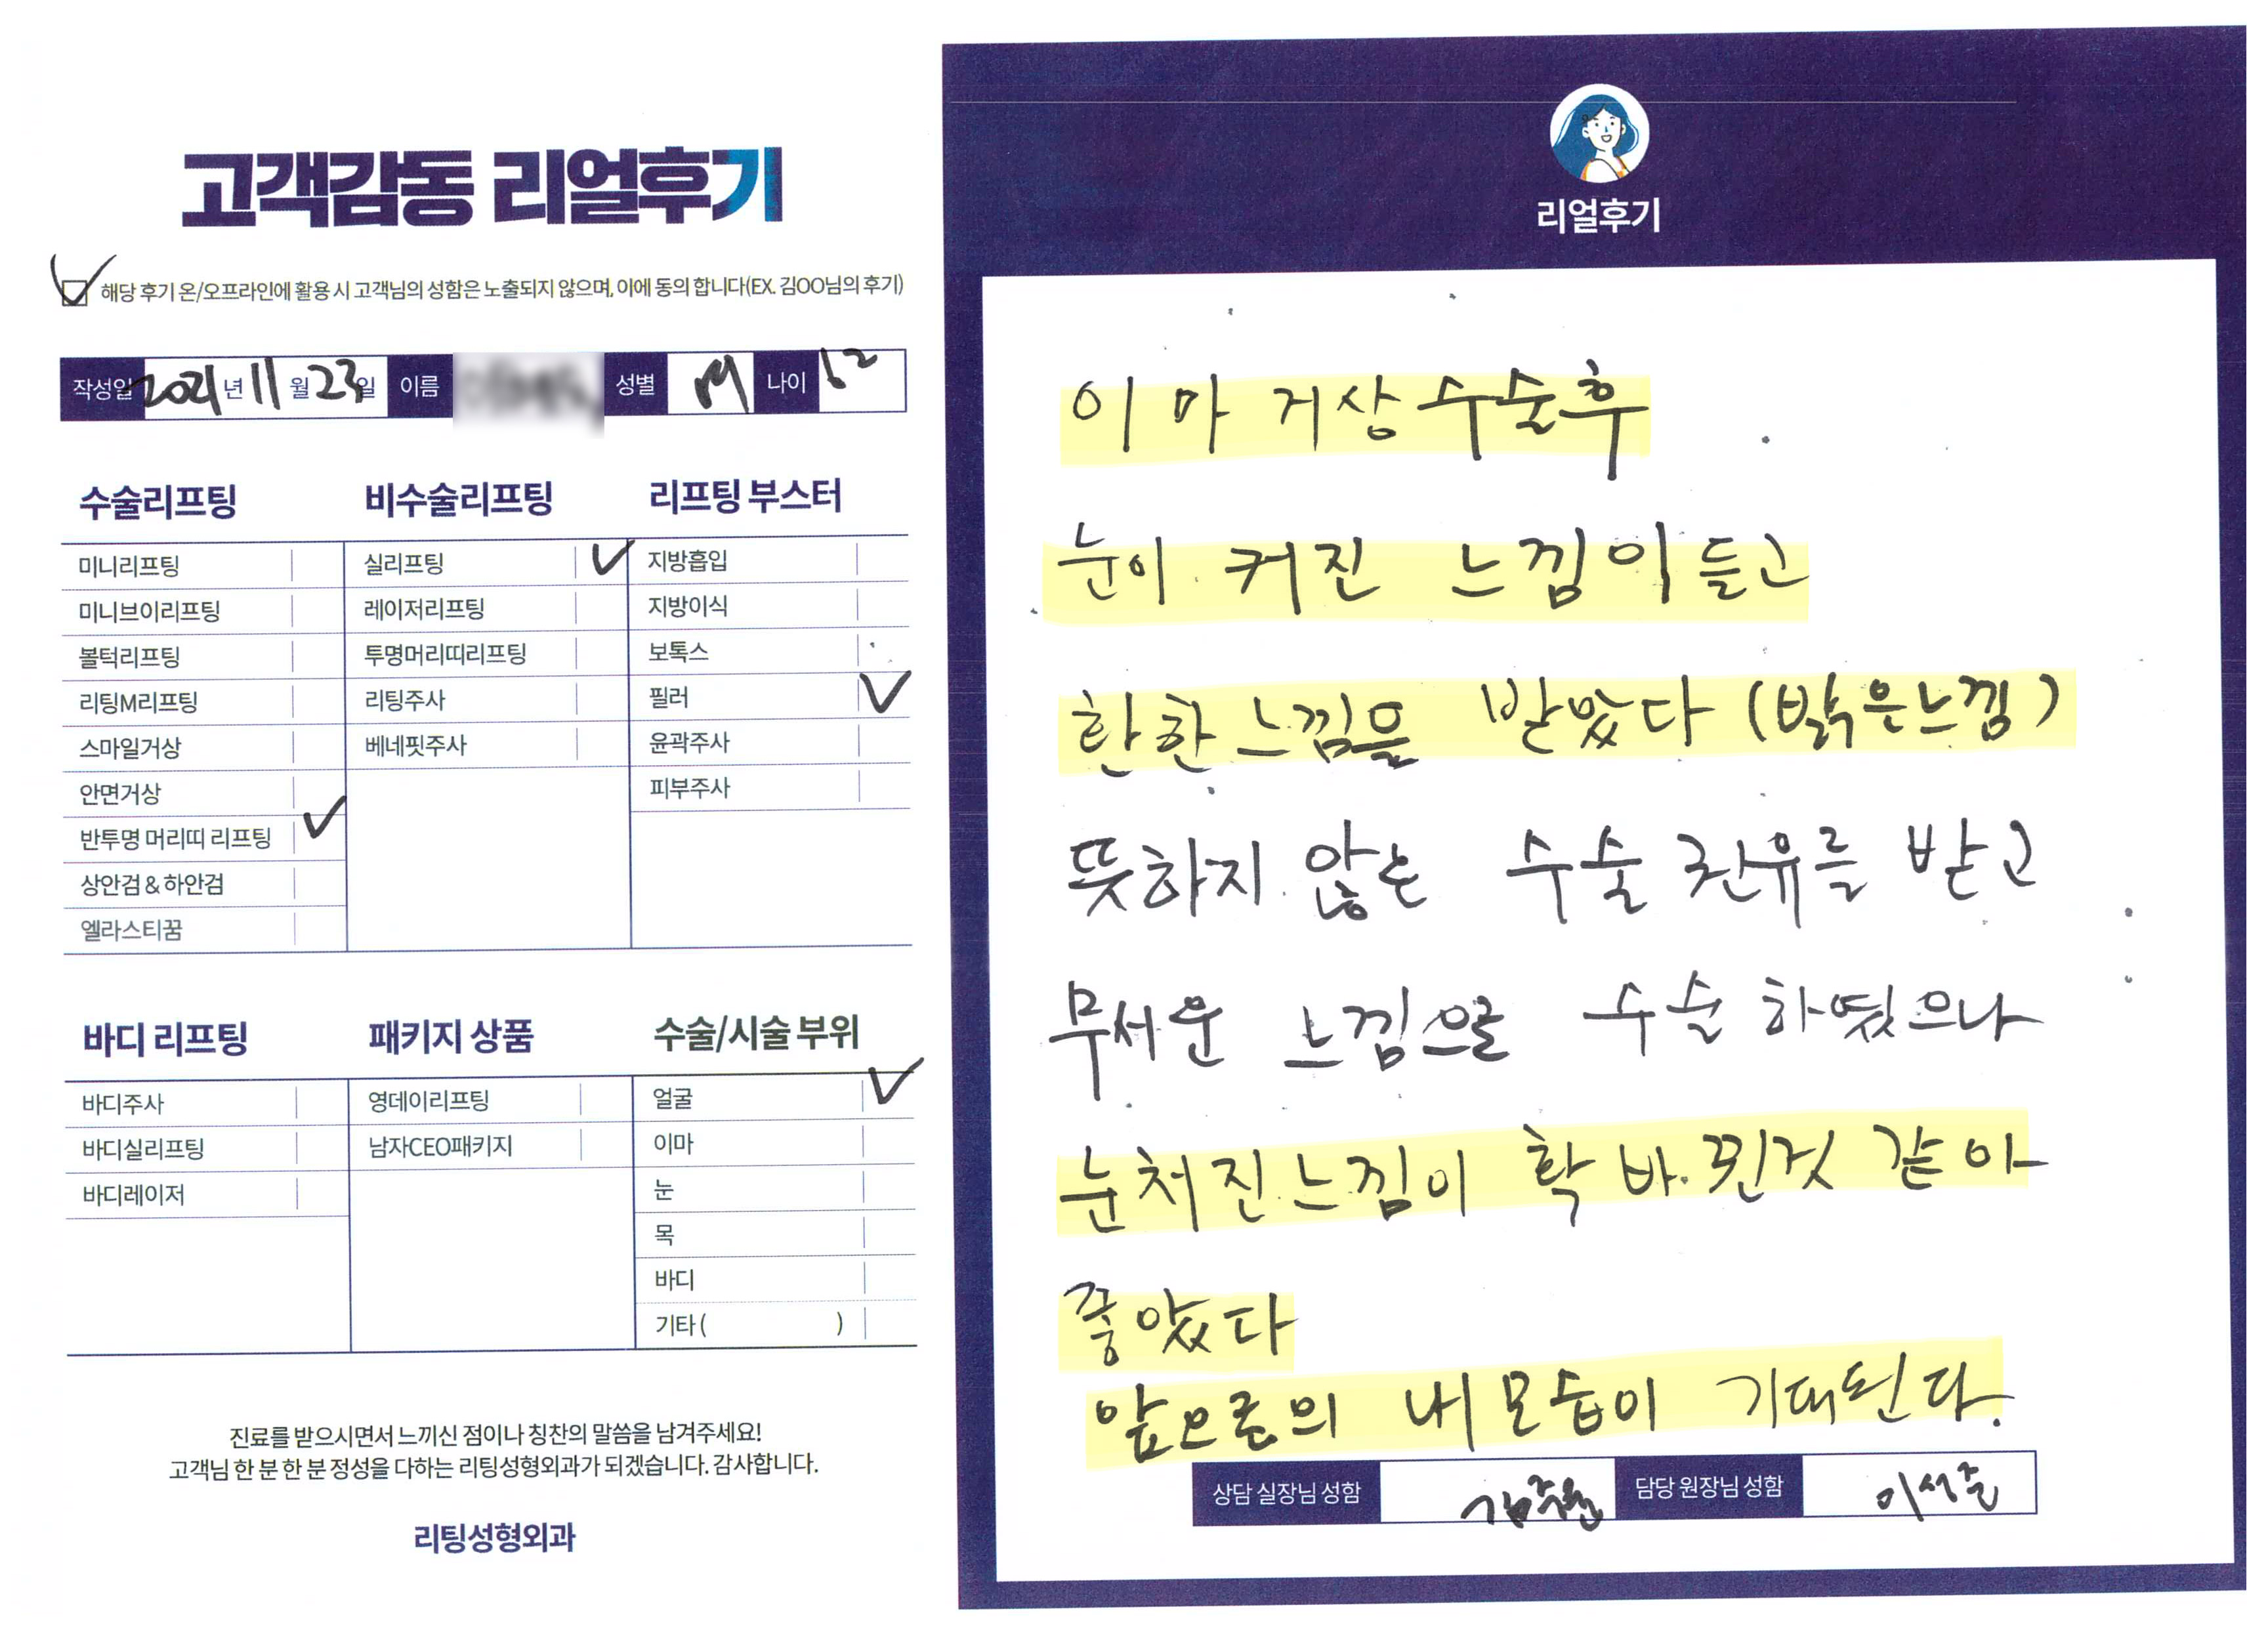 고객감동 리얼후기
해당 후기 온/오프라인에 활용 시 고객님의 성함은 노출되지 않으며, 이에 동의 합니다(EX. 김OO님의 후기)
작성일 2021년 11월 23일 이름 성별 M 나이
수술리프팅
미니리프팅
미니브이리프팅
볼턱리프팅
리팅M리프팅
스마일거상
안면거상
반투명 머리띠 리프팅
상안검 & 하안검
엘라스티꿈
비수술리프팅
실리프팅
레이저리프팅
투명머리띠리프팅
리팅주사
베네핏주사
리프팅 부스터
지방흡입
지방이식
보톡스
필러
윤곽주사
피부주사
바디 리프팅
바디주사
바디실리프팅
바디레이저
패키지 상품
영데이리프팅
남자CEO패키지
수술/시술 부위
얼굴
이마
눈
목
바디
기타 ( )
진료를 받으시면서 느끼신 점이나 칭찬의 말씀을 남겨주세요!
고객님 한 분 한 분 정성을 다하는 리팅성형외과가 되겠습니다. 감사합니다.
리팅성형외과
리얼후기
이마 거상 수술후
눈이 커진 느낌이 들고
환한 느낌을 받았다 (밝은느낌)
뜻하지 않은 수술 권유를 받고
무서운 느낌으로 수술 하였으나
눈처진느낌이 확 바뀐것 같아
좋았다
앞으로의 내 모습이 기대된다.
상담 실장님 성함 담당 원장님 성함